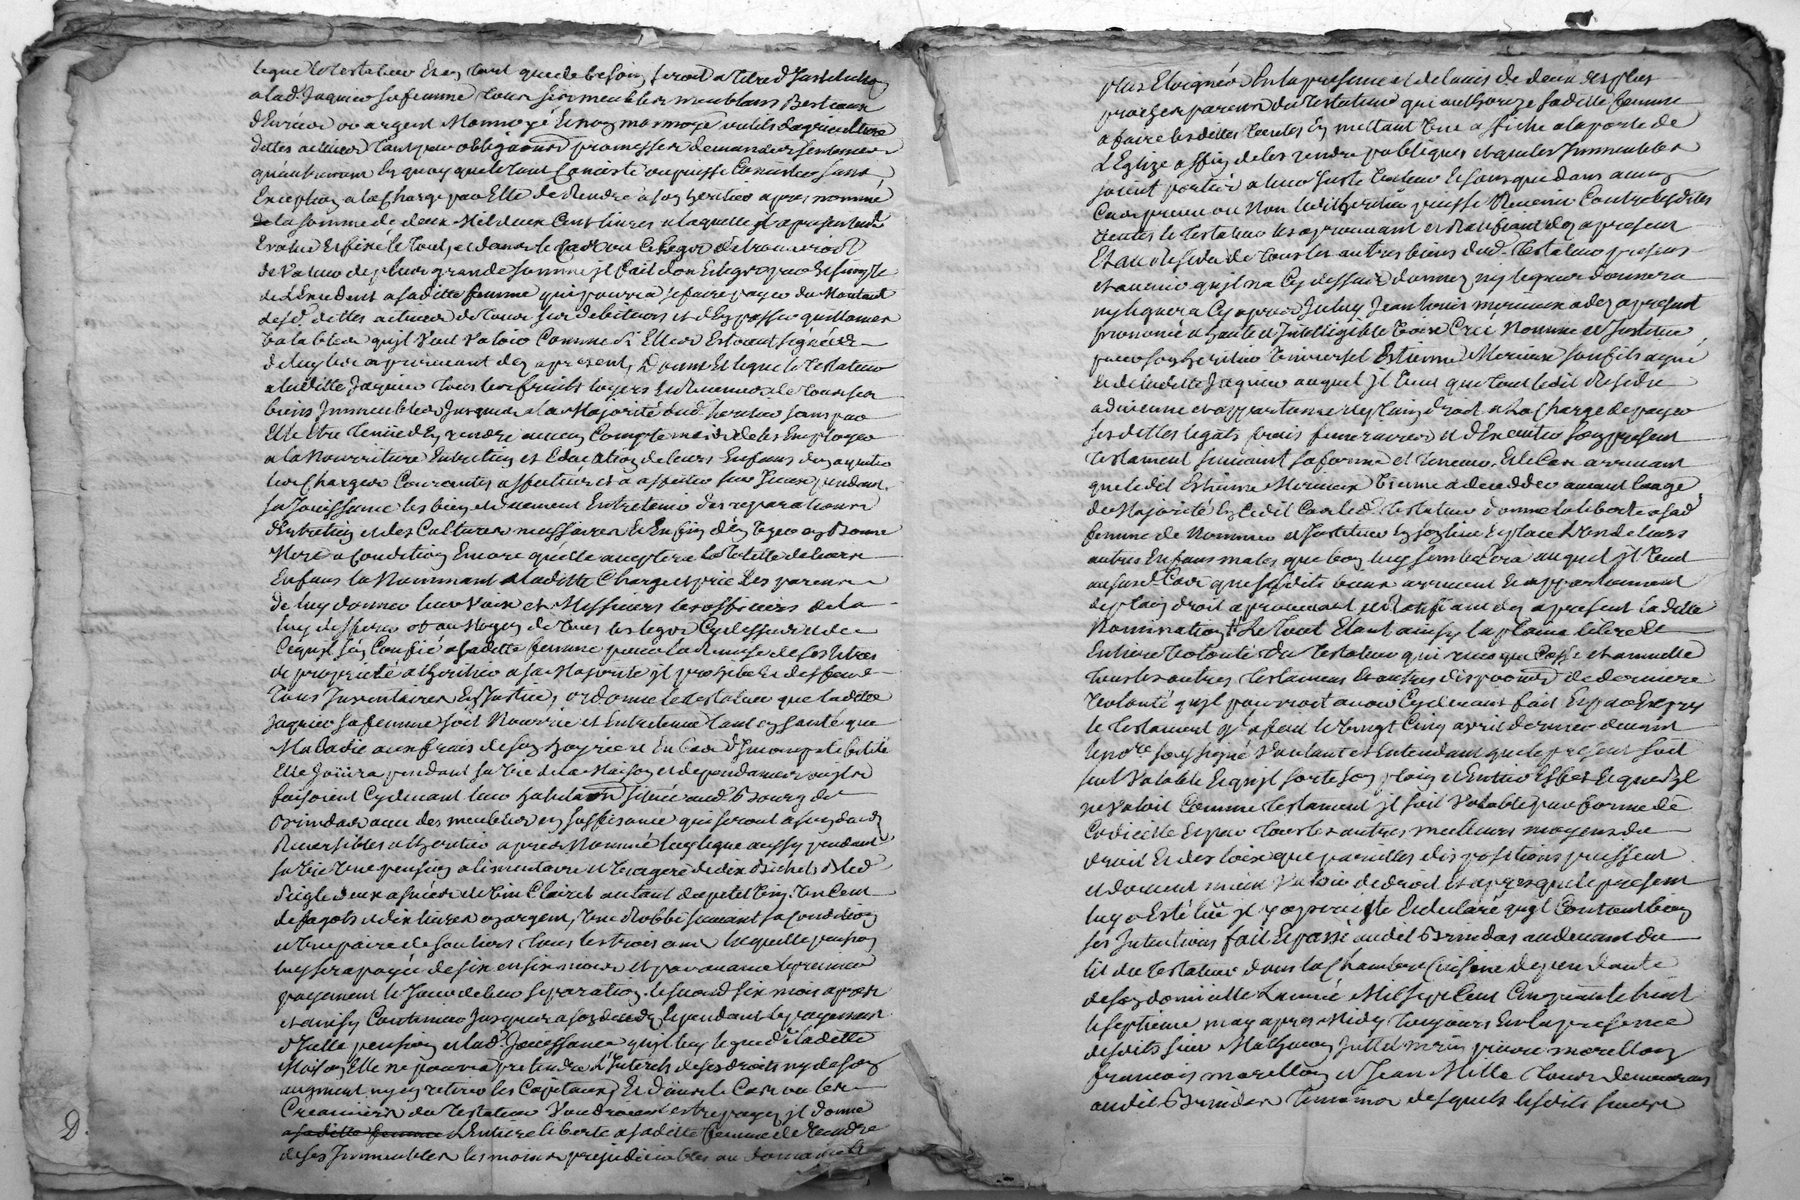 legue le testateur et en tant que de besoin seroit a titre d'Institution
a lad. Jaquier sa femme tous ses meubles meublans Bestiaux
denrées or argent Monnoyé et non monnoyé outils d'agriculture
dettes actives tant par obligations promesses demandes sentences
qu'autrement en quoy que le tout Consiste ou puisse Consister sans
Exception a la Charge par Elle de Rendre a son heritier apres nommé
la somme de deux Mil deux Cent livres a laquelle il a presentement
Evalué et fixé le tout, et dans le Cas ou ce legs se trouveroit
de valeur de plus grande somme il fait don et legs pur et simple
de l'Excedent a sa ditte femme qui pourra se faire payer du Montant
desd. dettes actives de tous ses debiteurs et d'en passer quittances
valables qu'il veut valoir Comme si Elles Estoient signées
de luy les approuvant dez a present, Donne et legue le testateur
a laditte Jaquier tous les fruits loyers et Revenus de tous ses
biens Immeubles Jusques a la Majorité dud. heritier sans par
Elle être tenüe d'en rendre aucun Compte mais de les Employer
a la Nourriture Entretien et Education de leurs Enfans d'en aquitter
les Charges Courantes affectées et a affecter sur Iceux pendant
sa Jouissance les bien et duement Entretenir des reparations
d'Entretien et des Cultures necessaires et Enfin d'en user en Bonne
Mere a Condition Encore qu'elle acceptera la tutelle de leurs
Enfans la Nommant a laditte Charge et prie les parens
de luy donner leur voix et Messieurs les officiers de la
luy deferer et au Moyen de tous les legs Cy dessus et de
Ce qu'il s'en Confie a sa ditte femme pour la Remise de ses titres
de proprieté a l'heritier a sa Majorité il prohibe et deffend
tous Inventaires En Justice, ordonne le testateur que laditte
Jaquier sa femme soit Nourrie et Entretenue tant en santé que
Maladie aux frais de son hoyrie et En Cas d'Incompatibilité
Elle Joüira pendant sa vie de la Maison et dependances ou ils
faisoient Cydevant leur habitation située aud. Bourg de
Brindas avec des meubles en suffisance qui seront a son deces
Reversibles a l'heritier apres Nommé luy legue aussy pendant
sa vie une pension alimentaire et viagere de dix Bichets Bled
seigle deux asnées de vin Clairet autant de petit vin, un Cent
de fagots et dix livres en argent, une Robbe suivant sa condition
et une paire de souliers tous les trois ans laquelle pension
luy sera payée de six en six mois et par avance le premier
payement le Jour de leur separation, le second six mois apres
et ainsy Continuer Jusques a son deces et pendant le payement
d'icelle pension et lad. Jouissance qu'il luy legue de laditte
Maison Elle ne pourra pretendre l'Interets de ses droits ny de son
augment ny en retirer les Capitaux Et Dans le Cas ou les
Creanciers du testateur Voudroient estre payés il donne
a saditte femme l'Entiere liberté a saditte femme de Vendre
de ses Immeubles les moins prejudiciables au domaine et
D.
plus Eloignés En la presence et de l'avis de deux des plus
proches parens du testateur qui authorize sa ditte femme
a faire lesdittes ventes En mettant une affiche a la porte de
L'Eglize affin de les rendre publiques et que les Immeubles
soient portés a leur Juste valeur et sans que dans aucun
Cas prevu ou Non ledit heritier puisse Revenir Contre lesdites
ventes le testateur les approuvant et Ratifiant dez a present
Et au Residu de tous les autres biens dud. testateur presens
et avenir qu'il n'a Cy dessus donnez ny leguez donnera
ny leguera Cy apres Icelluy Jean Louis merieux a dez a present
prononcé a haute et Intelligible voix Créé Nommé et Institué
pour son heritier Universel Estienne Merieux son fils a qui
et de laditte Jaquier auquel il veut que tout ledit Residu
advienne et appartienne de plein droit a la Charge de payer
ses dettes legats frais funeraires et d'Executer son present
testament suivant sa forme et teneur, Et le Cas arrivant
que ledit Estienne Merieux vienne a deceder avant l'aage
de Majorité En Cedit Cas led. testateur donne la liberté a sad.
femme de Nommer et Instituer En son lieu et place l'un de leurs
autres Enfans males que bon luy semblera auquel il veut
aususd. Cas que sesdits biens arrivent et appartiennent
de plein droit approuvant et Ratifiant dez a present laditte
Nomination, Le tout Etant ainsy la pleine libre et
Entiere volonté du testateur qui revoque Casse et annulle
tous les autres testamens et autres dispositions de derniere
volonté qu'il pourroit avoir Cydevant fait Et par Exprez
le testament qu'il a fait le vingt Cinq avril dernier devant
le nore. soussigné Voulant et Entendant que le present soit
seul valable et qu'il sorte son plein et Entier Effet et que s'il
ne valoit Comme testament il soit valable par forme de
Codicille et par tous les autres meilleurs moyens de
droit et des loix que pareilles dispositions puissent
et doivent mieux Valoir de droit et apres que le present
luy a Esté lû il y a persisté et declaré qu'il Contient bien
ses Intentions fait et passé audit Brindas audevant du
lit du testateur dans la Chambre Cuisine dependante
de son domicille L'année Mil sept Cent Cinquante huit
le septieme may apres Midy toujours En la presence
desdits sieur Mathieu Juttet merin pierre morellon
françois morellon et Jean Mille tous demeurans
audit Brindas temoins desquels lesdits sieurs